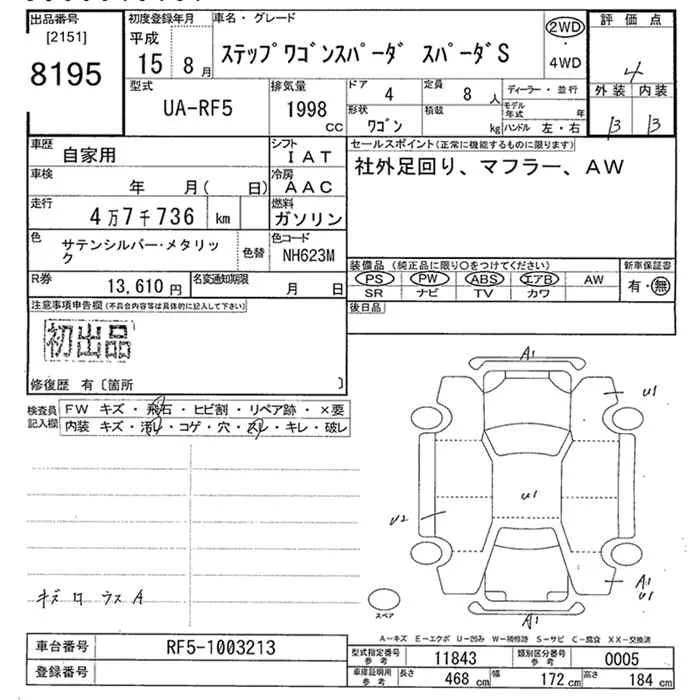 出品番号 [2151] 8195
初度登録年月 平成 15 8月
車名・グレード ステップワゴンスパーダ スパーダS
2WD ・ 4WD
評価点 4
外装 内装
B B
型式 UA-RF5
排気量 1998 CC
ドア 4
定員 8 人
形状 ワゴン
積載 kg
ディーラー・並行
モデル年式 年
ハンドル 左・右
車歴 自家用
シフト IAT
車検 年 月( 日)
冷房 AAC
走行 4万7千736 km
燃料 ガソリン
色 サテンシルバー・メタリック
色替
色コード NH623M
R券 13,610円
名変通知期限 月 日
セールスポイント(正常に機能するものに限ります)
社外足回り、マフラー、AW
装備品 (純正品に限り○をつけてください)
PS PW ABS エアB AW
SR ナビ TV カワ
新車保証書
有・無
後日品
注意事項申告欄(不具合内容等は具体的に記入して下さい)
初出品
修復歴 有〔箇所 〕
検査員記入欄
FW キズ・飛石・ヒビ割・リペア跡・×要
内装 キズ・汚レ・コゲ・穴・スレ・キレ・破レ
A1
U1
U1
U2
A1
U1
A1
スペア
キズ ロ ウス A
A-キズ E-エクボ U-凹み W-補修跡 S-サビ C-腐食 XX-交換済
車台番号 RF5-1003213
登録番号
型式指定番号 参考 11843
類別区分番号 参考 0005
車庫証明用 参考 長さ 468 cm 幅 172 cm 高さ 184 cm